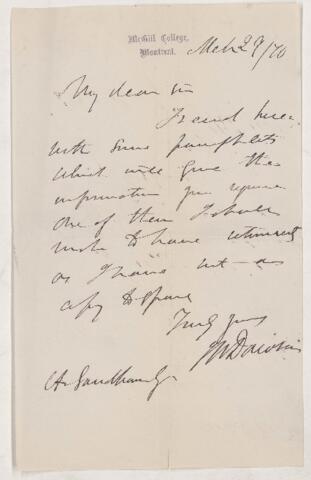 McGill College,
Montreal.
Mch 29/70
My dear sir
I send here
with some pamphlets
which will give the
information you require
One of them I should
wish to have returned
as I have not a
copy to spare
Truly yours
JWDawson